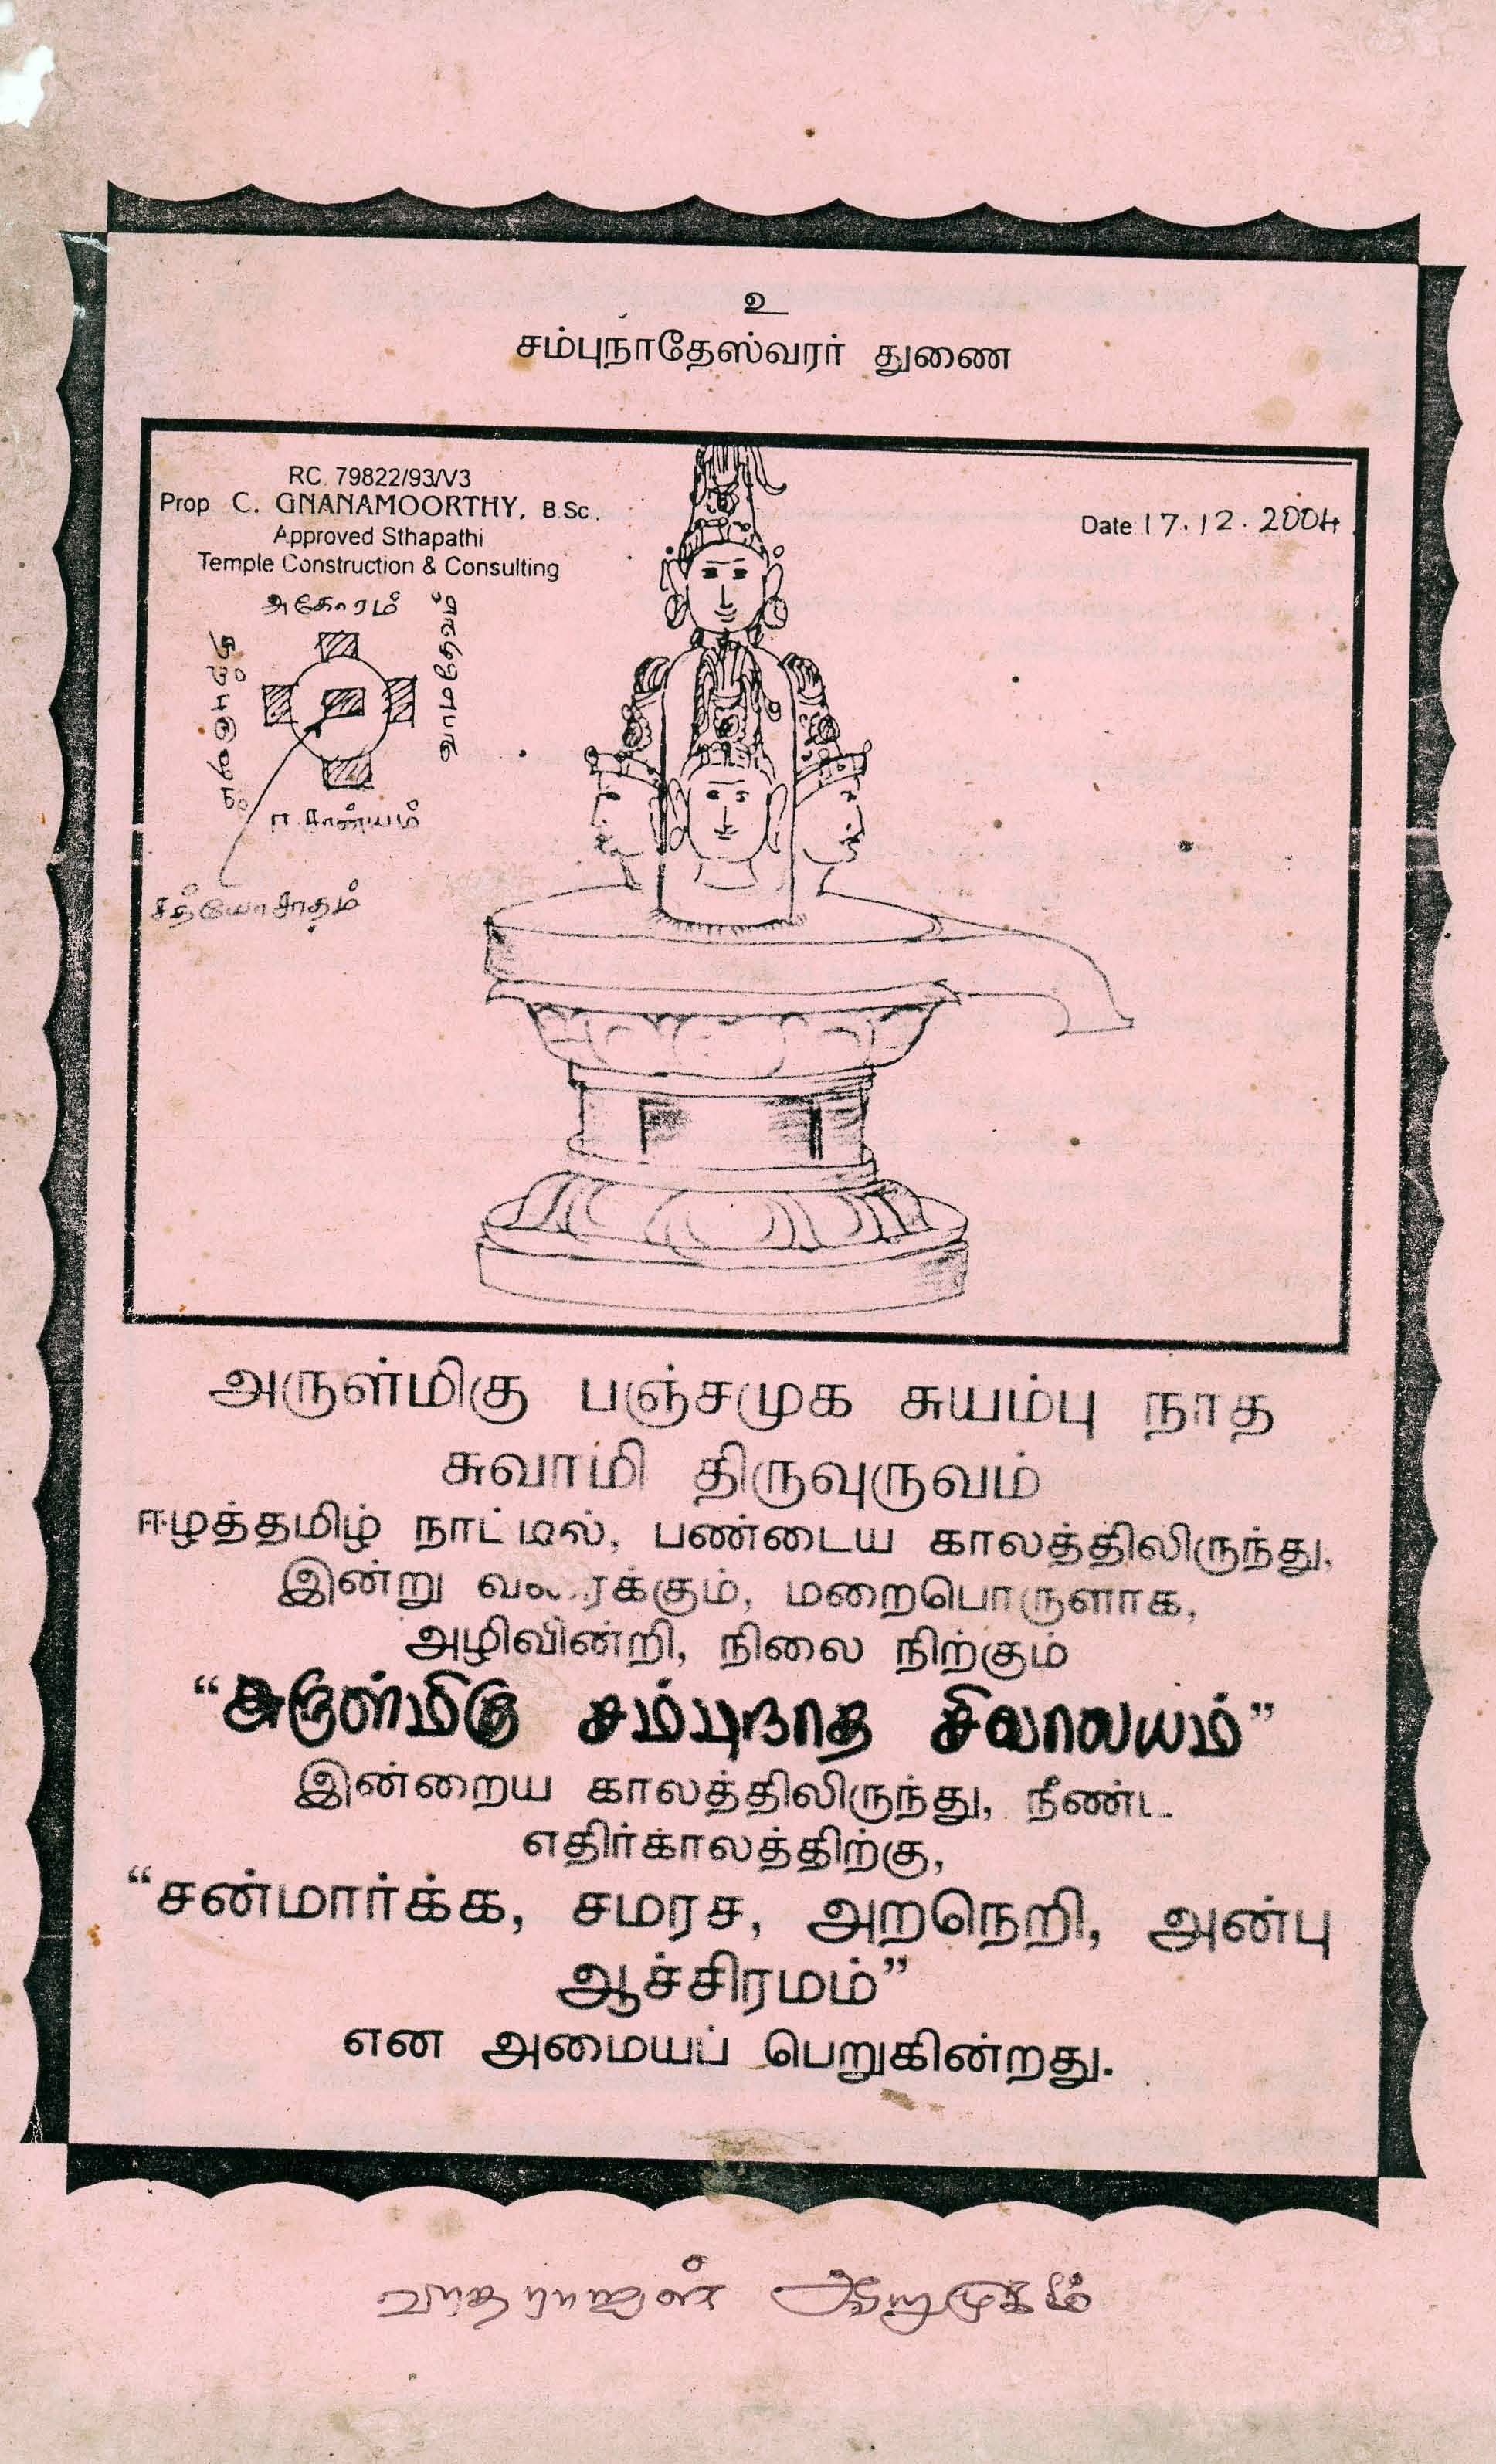 உ
சம்புநாதேஸ்வரர் துணை
RC. 79822/93/V3
Prop C. GNANAMOORTHY, B.Sc.,
Approved Sthapathi
Temple Construction & Consulting
Date 17.12.2004
அகோரம்
வாமதேவம்
தற்புருஷம்
ஈசான்யம்
சத்யோசாதம்
அருள்மிகு பஞ்சமுக சுயம்பு நாத
சுவாமி திருவுருவம்
ஈழத்தமிழ் நாட்டில், பண்டைய காலத்திலிருந்து,
இன்று வரைக்கும், மறைபொருளாக,
அழிவின்றி, நிலை நிற்கும்
“அருள்மிகு சம்புநாத சிவாலயம்”
இன்றைய காலத்திலிருந்து, நீண்ட
எதிர்காலத்திற்கு,
“சன்மார்க்க, சமரச, அறநெறி, அன்பு
ஆச்சிரமம்”
என அமையப் பெறுகின்றது.
வரதராஜன் ஆறுமுகம்